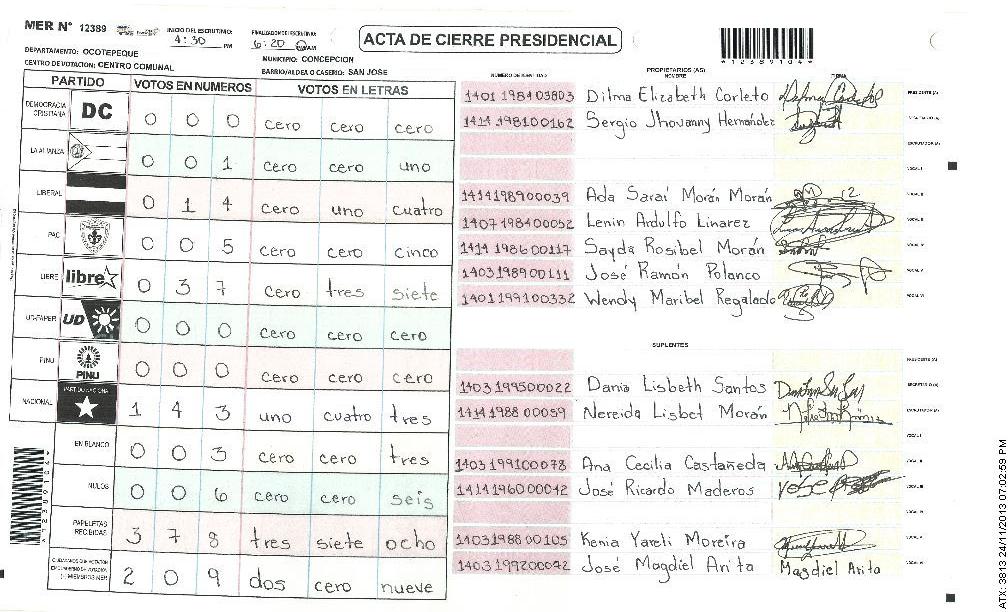 MER N° 12389
INICIO DEL ESCRUTINIO: 4:30 PM
FINALIZACION DEL ESCRUTINIO: 6:20
ACTA DE CIERRE PRESIDENCIAL
*12389104*
DEPARTAMENTO: OCOTEPEQUE
MUNICIPIO: CONCEPCION
CENTRO DE VOTACION: CENTRO COMUNAL
BARRIO/ALDEA O CASERIO: SAN JOSE
PARTIDO VOTOS EN NUMEROS VOTOS EN LETRAS
DEMOCRACIA CRISTIANA DC 0 0 0 cero cero cero
LA ALIANZA 0 0 1 cero cero uno
LIBERAL 0 1 4 cero uno cuatro
PAC 0 0 5 cero cero cinco
LIBRE libre 0 3 7 cero tres siete
UD-FAPER UD 0 0 0 cero cero cero
PINU PINU 0 0 0 cero cero cero
NACIONAL PARTIDO NACIONAL 1 4 3 uno cuatro tres
EN BLANCO 0 0 3 cero cero tres
NULOS 0 0 6 cero cero seis
PAPELETAS RECIBIDAS 3 7 8 tres siete ocho
CIUDADANOS QUE VOTARON (+) MIEMBROS MER 2 0 9 dos cero nueve
NUMERO DE IDENTIDAD PROPIETARIOS (AS) NOMBRE FIRMA
1401 1984 03803 Dilma Elizabeth Corleto PRESIDENTE (A)
1414 1981 00162 Sergio Jhovanny Hernández SECRETARIO (A)
ESCRUTADOR (A)
VOCAL I
1414 1989 00039 Ada Saraí Morán Morán VOCAL II
1407 1984 00052 Lenin Ardulfo Linarez VOCAL III
1414 1986 00117 Sayda Rosibel Morán VOCAL IV
1403 1989 00111 José Ramón Polanco VOCAL V
1401 1991 00332 Wendy Maribel Regalado VOCAL VI
SUPLENTES
PRESIDENTE (A)
1403 1995 00022 Dania Lisbeth Santos SECRETARIO (A)
1414 1988 00059 Nereida Lisbet Morán ESCRUTADOR (A)
VOCAL I
1403 1991 00078 Ana Cecilia Castañeda VOCAL II
1414 1960 00042 José Ricardo Maderos VOCAL III
VOCAL IV
1403 1988 00105 Kenia Yareli Moreira VOCAL V
1403 1992 00042 José Magdiel Arita Magdiel Arita VOCAL VI
ATX: 3913 24/11/2013 07:02:59 PM